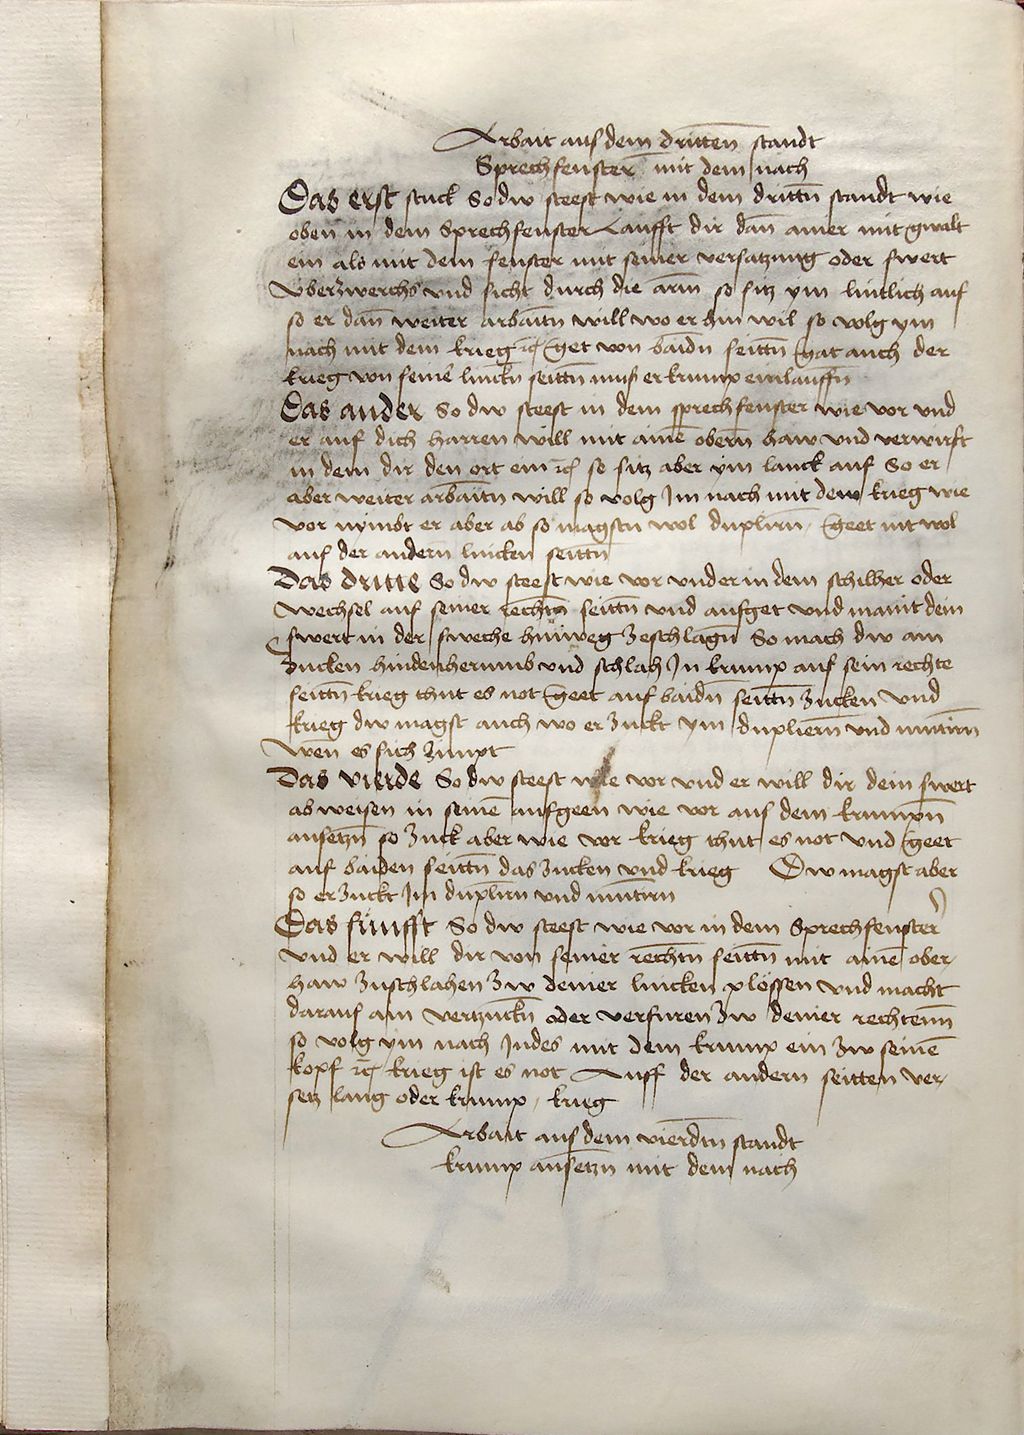 Arbait aus dem dritten standt
Sprechfenster mit dem nach
Das erst stuck So dw steest wie in dem drittn̄ standt wie
oben in dem Sprechfenster Laufft dir dan̄ ainer mit gwalt
ein als mit dem fenster mit seiner versatzung oder swert
vberzwerchs vnd sicht durch die arm̄ so sitz ym lincklich auf
so er dan̄ weiter arbaitn̄ will wo er hin wil so volg ym
nach mit dem krieg rc̄ get von baidn̄ seittn̄ gat auch der
krieg von seinē linckn̄ seittn̄ mus er krump einlauffn̄
Das ander So dw steest in dem sprechfenster wie vor vnd
er auf dich harren will mit ainē obern̄ haw vnd verwirft
in dem dir den ort ein rc̄ so sitz aber ym lanck auf So er
aber weiter arbaitn̄ will so volg Im nach mit dem krieg wie
vor nymbt er aber ab so magstu wol duplirn̄ / geet nit wol
auf der andern̄ lincken seittn̄
Das dritte So dw steest wie vor vnd er in dem schilher oder
wechsel auf seiner rechtn̄ seittn̄ vnd aufget vnd maint dein
swert in der sweche hinweg zeschlagn̄ So mach dw am
zucken hindenherumb vnd schlah In krump auf sein rechte
seittn̄ krieg thut es not geet auf baidn̄ seittn̄ zucken vnd
krieg dw magst auch wo er zuckt ym duplieren̄ vnd mutirn̄
wen es sich zimpt
Das vierde So dw steest wie vor vnd er will dir dein swert
abweisen in seinē aufgeen wie vor aus dem krumpn̄
ansetzn̄ so zuck aber wie vor krieg thut es not vnd geet
auf baiden seittn̄ das zucken vnd krieg Dw magst aber
so er zuckt Im duplirn vnd mutirn
Das funfft So dw steest wie vor in dem Sprechfenster
vnd er will dir von seiner rechtn̄ seittn̄ mit ainē ober/
haw zuschlahen zw deiner lincken plossen vnd macht
darauf ain vertzuckn̄ oder verfuren zw deiner rechtenn̄
so volg ym nach Indes mit dem krump ein zw seinē
kopf rc̄ krieg ist es not Auff der andern seitten ver/
setz lang oder krump / krieg
Arbait aus dem vierdn̄ standt
krump ansetzn̄ mit dem nach